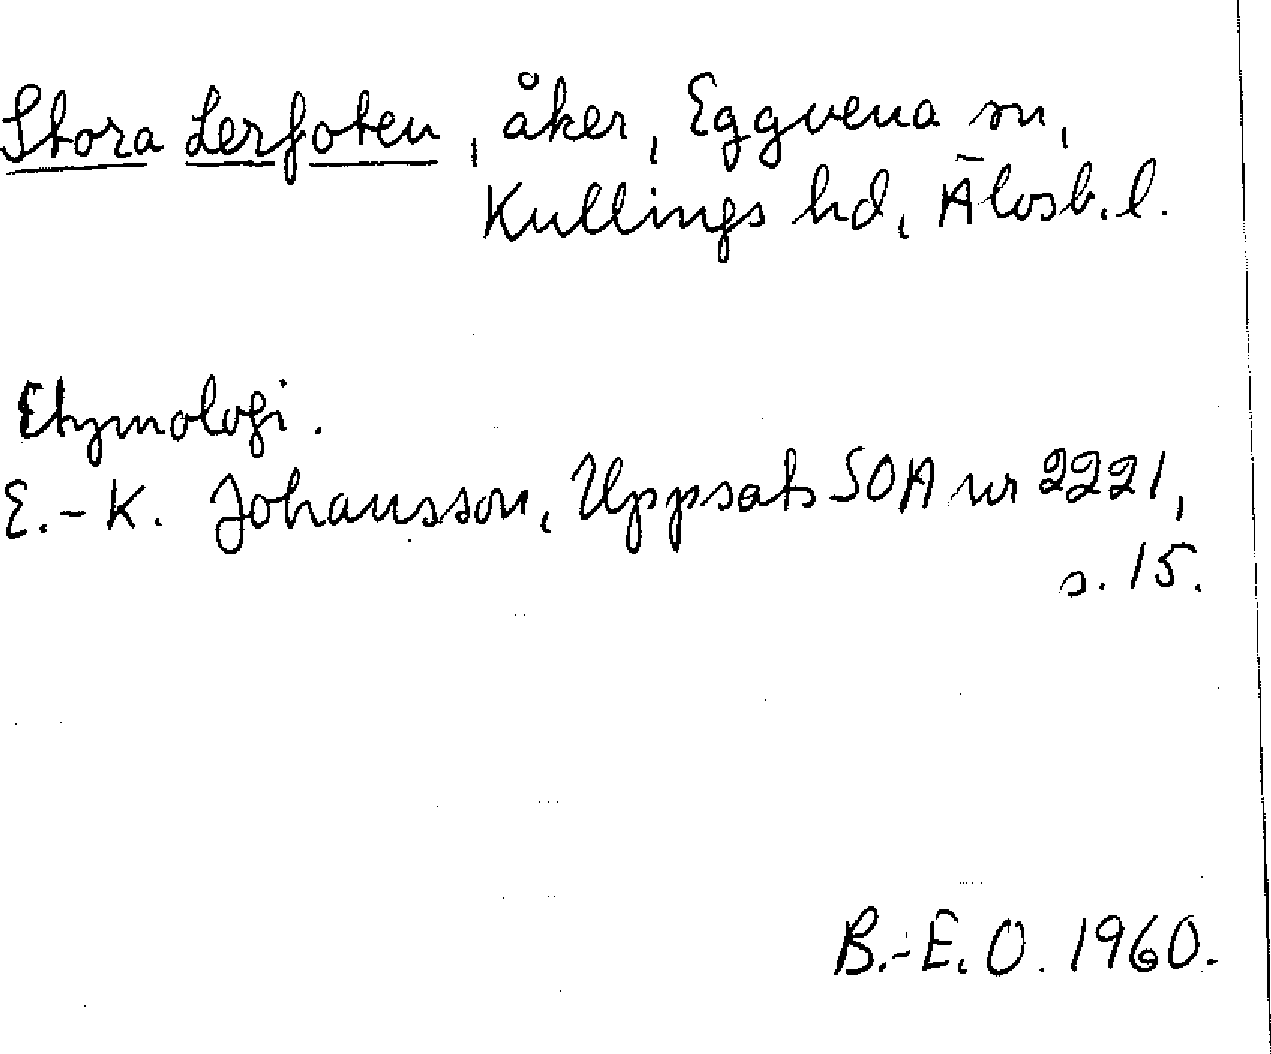 Stora Lerfoten, åker, Eggvena sn,
Kullings hd, Älvsb. l.
Etymologi.
E.-K. Johansson, Uppsats SOA nr 2221,
s. 15.
B.-E. O. 1960.